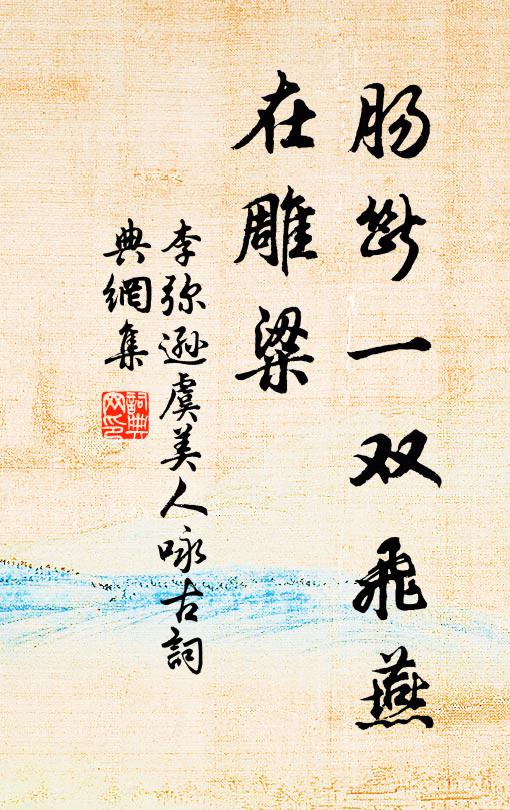 肠断一双飞燕
在雕梁
李弥逊虞美人咏古詞
典網集
詞典網印